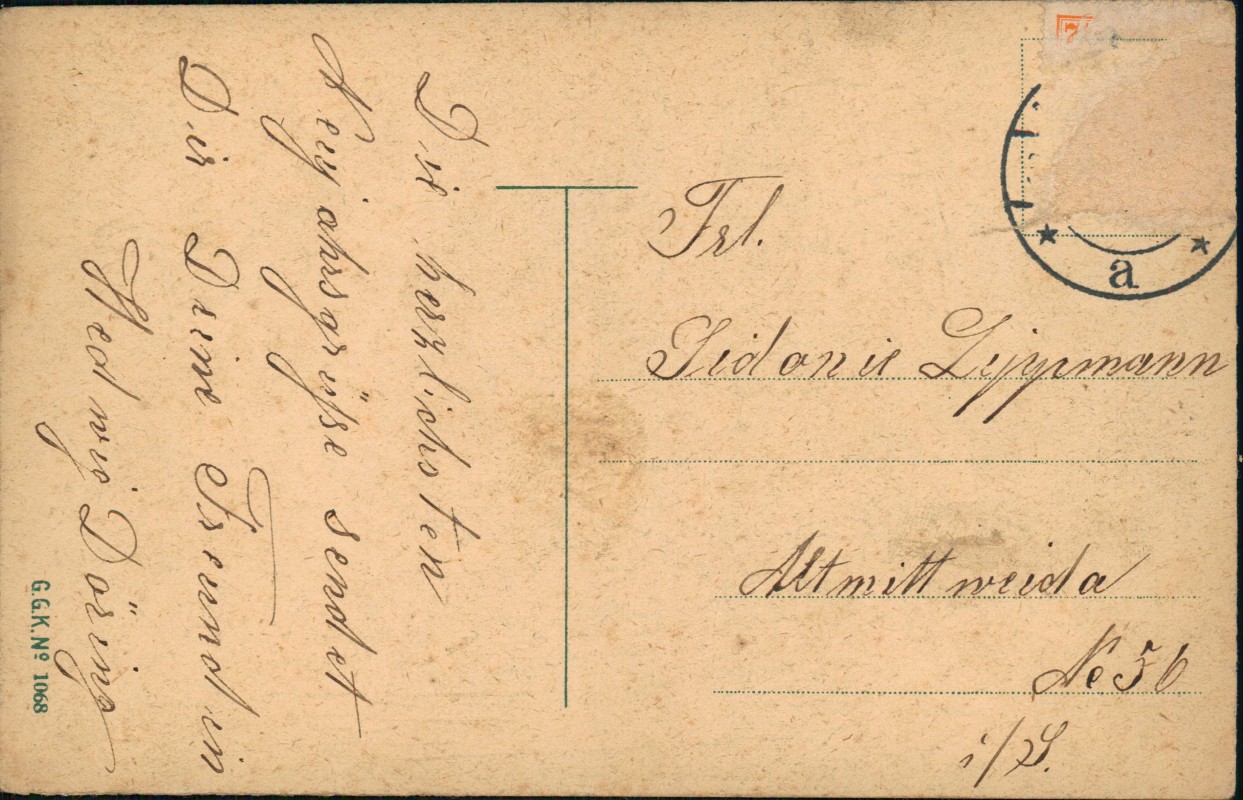 Die herzlichsten
Neujahrsgrüsse sendet
Dir Deine Freundin
Hedwig Döring
G.G.K.Nº 1068
Frl.
Sidonie Lippmann
Altmittweida
No 56
i/S.
a